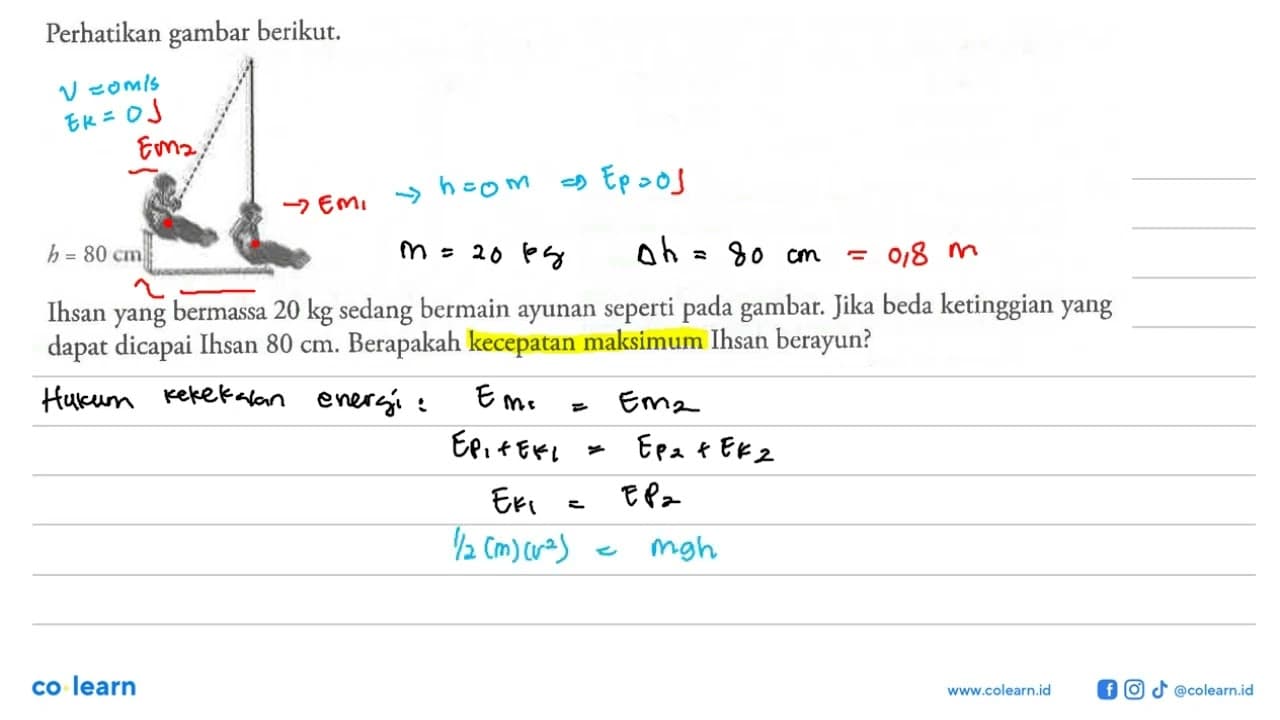 Perhatikan gambar berikut.
V = 0 m/s
EK = 0 J
Em2
→ Em1 → h = 0 m ⇒ Ep = 0 J
h = 80 cm
m = 20 kg Δh = 80 cm = 0,8 m
Ihsan yang bermassa 20 kg sedang bermain ayunan seperti pada gambar. Jika beda ketinggian yang
dapat dicapai Ihsan 80 cm. Berapakah kecepatan maksimum Ihsan berayun?
Hukum kekekalan energi : Em1 = Em2
Ep1 + Ek1 = Ep2 + Ek2
Ek1 = Ep2
1/2 (m) (v²) = mgh
co learn
www.colearn.id
@colearn.id